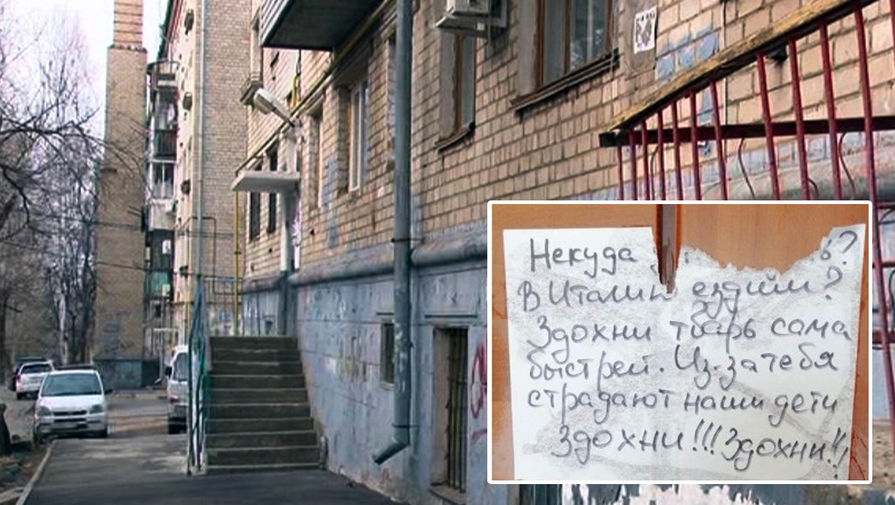 Некуда ?
В Италии ездим?
Здохни тварь сама
быстрей. Из-за тебя
страдают наши дети
Здохни!!! Здохни!!!